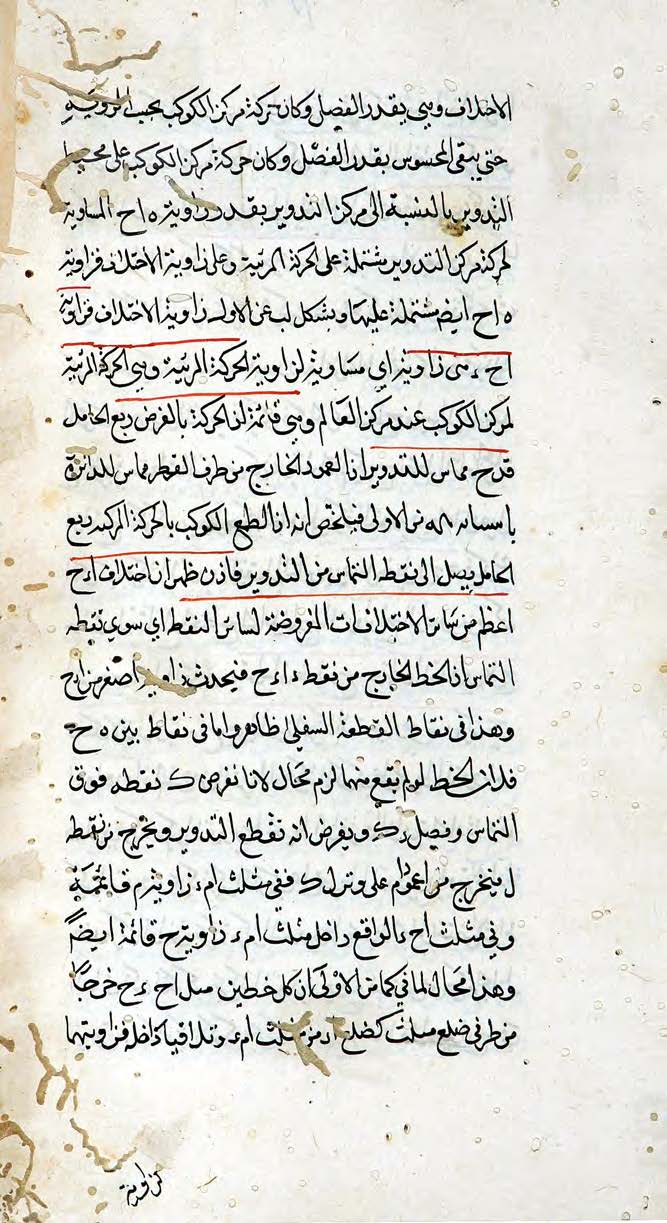 الاختلاف وهى بقدر الفضل وكان حركة مركز الكوكب بحسب الروية
حتى يبقى المحسوس بقدر الفضل وكان حركة مركز الكوكب على محيط
التدوير بالنسبة الى مركز التدوير بقدر زاوية ه اح المساوية
لحركة مركز التدوير مشتملة على الحركة المرئية وعلى زاوية الاختلاف فزاوية
ه اح ايضا مشتملة عليهما وبشكل لب من الاولى زاوية الاختلاف فزاوية
اح ء هى زاوية اى مساوية لزاوية الحركة المرئية وهى الحركة المرئية
لمركز الكوكب عند مركز العالم وهى قائمة لان الحركة بالفرض ربع الحامل
فدح مماس للتدوير اذ العمود الخارج من طرف القطر مماس للدائرة
من الاولى فيلخص انه اذا قطع الكوكب بالحركة المركبة ربع
الحامل يصل الى نقطة التماس من التدوير فاذن ظهر ان اختلاف اءح
اعظم من سائر الاختلافات المفروضة لسائر النقط اى سوى نقطة
التماس اذ الخط الخارج من نقطة ء اءح فيحدث زاوية اصغر من اءح
وهذا فى نقاط القطعة السفلى ظاهر واما فى نقاط بين ه ح
فلان الخط لو لم يقع منهما لزم محال لانا نفرض ك نقطة فوق
التماس وفصل ء ك ويفرض انه تقطع التدوير ويخرج من نقطة
ل فيخرج من ا عمود ام على وتر ل ك ففى مثلث ام ء زاوية م قائمة
وفى مثلث اح ء الواقع داخل مثلث ام ء زاوية ح قائمة ايضا
وهذا محال لما فى كا من الاولى ان كل خطين مثل اح ء ح خرجا
من طرفى ضلع مثلث كضلع اء من مثلث ام ء وتلاقيا داخله فزاويتهما
من زاوية